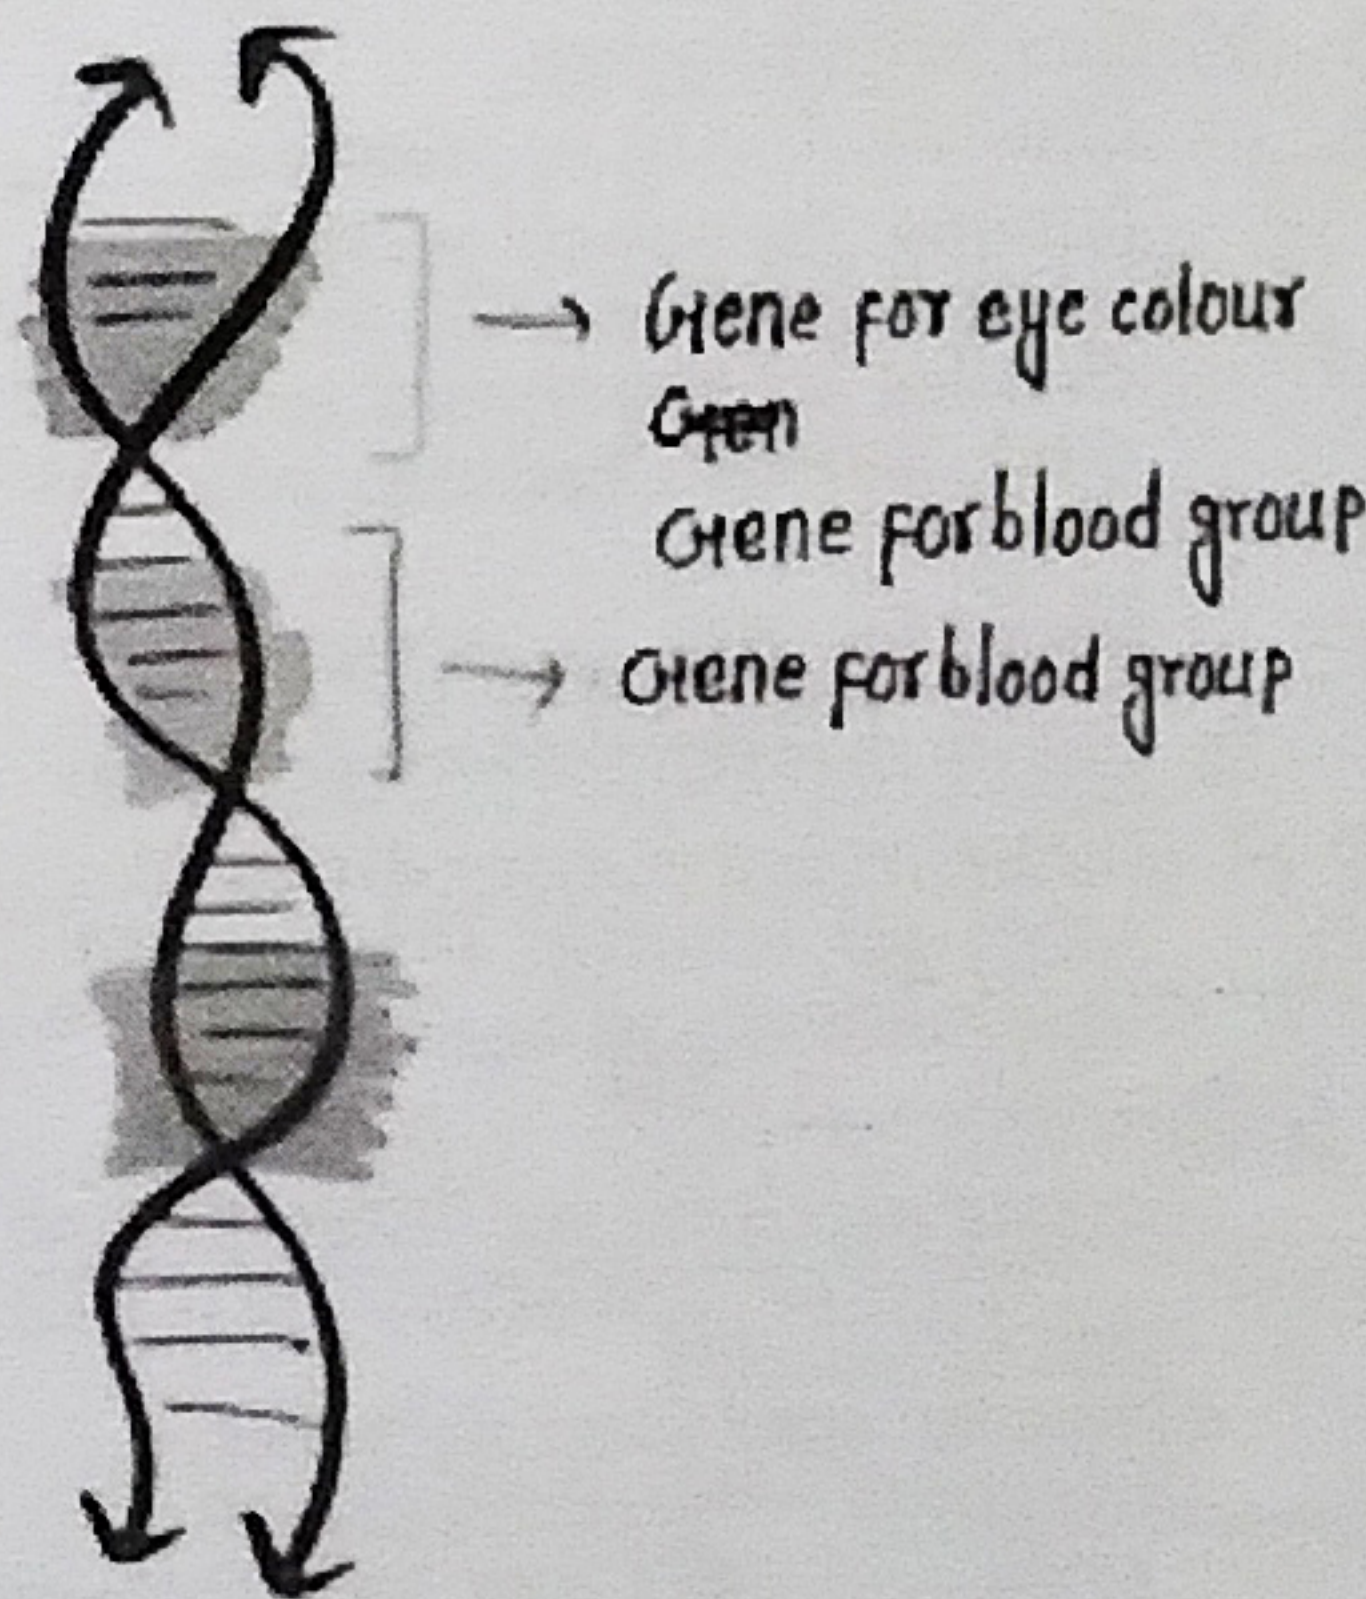 Gene for eye colour
Gene for blood group
Gene for blood group